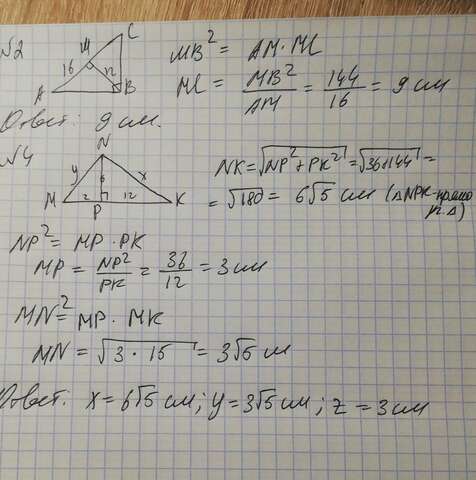 №2
C
M
16
12
A
B
MB² = AM · MC
MC = MB²/AM = 144/16 = 9 см
Ответ: 9 см.
№4
N
y
6
x
M
z
P
12
K
NK = √(NP² + PK²) = √(36+144) =
= √180 = 6√5 см (△NPK – прямо
уг. △)
NP² = MP · PK
MP = NP²/PK = 36/12 = 3 см
MN² = MP · MK
MN = √(3 · 15) = 3√5 см
Ответ: x = 6√5 см; y = 3√5 см; z = 3 см